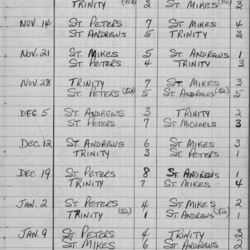 TRINITY 3 ST. MIKES 3
NOV. 14 ST. PETERS 7 ST. MIKES 4
ST. ANDREWS 5 TRINITY 3
NOV. 21 ST. MIKES 5 ST. ANDREWS 1
ST. PETERS 4 TRINITY 3
NOV. 28 TRINITY 7 ST. MIKES 3
ST. PETERS 5 ST. ANDREWS 5
DEC. 5 ST. ANDREWS 3 TRINITY 2
ST. PETERS 7 ST. MICHAELS 3
DEC. 12 ST. ANDREWS 6 ST. MIKES 3
TRINITY 3 ST. PETERS 1
DEC. 19 ST. PETERS 8 ST. ANDREWS 1
TRINITY 7 ST. MIKES 4
JAN. 2 ST. PETERS 4 ST. MIKES 2
TRINITY 1 ST. ANDREWS 1
JAN. 9 ST. PETERS 4 TRINITY 2
ST. MIKES 6 ST. ANDREWS